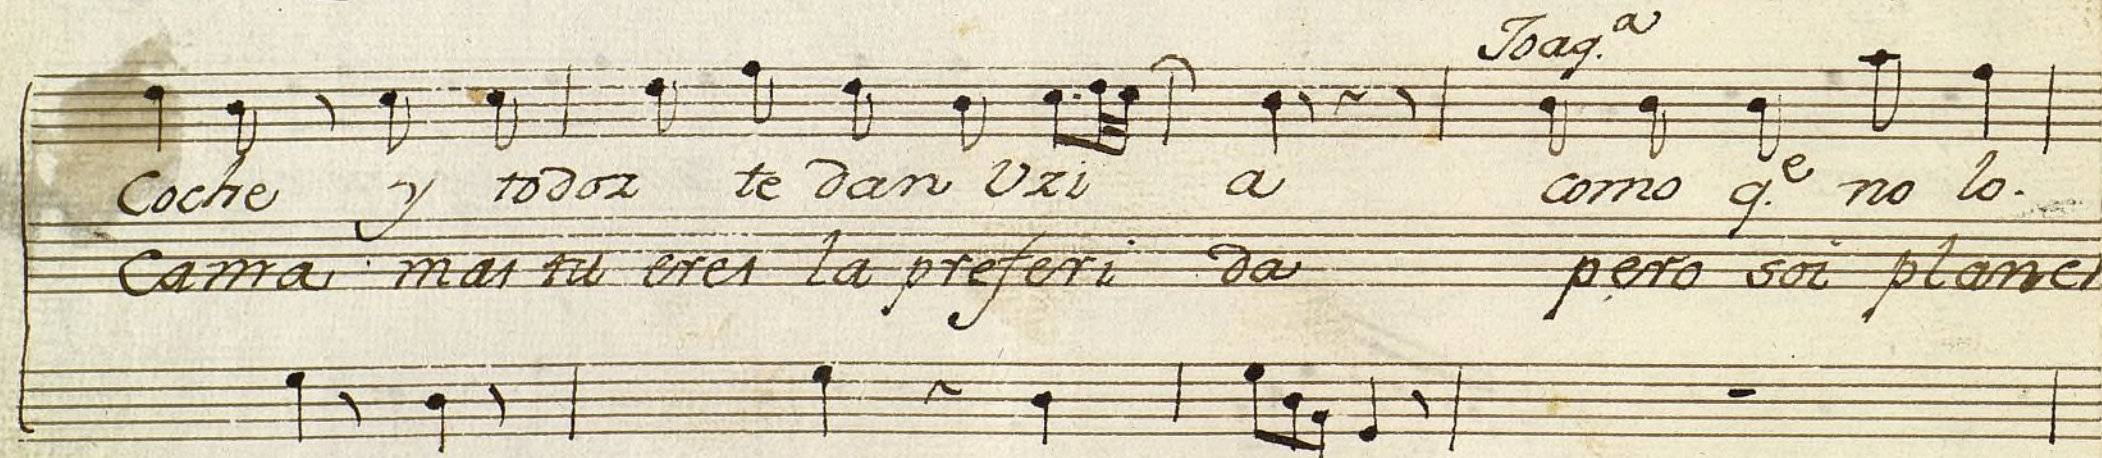 Joaq.ª
Coche y todoz te dan Vzi a como q.e no lo.
Cama mas tu eres la preferi da pero soi planet